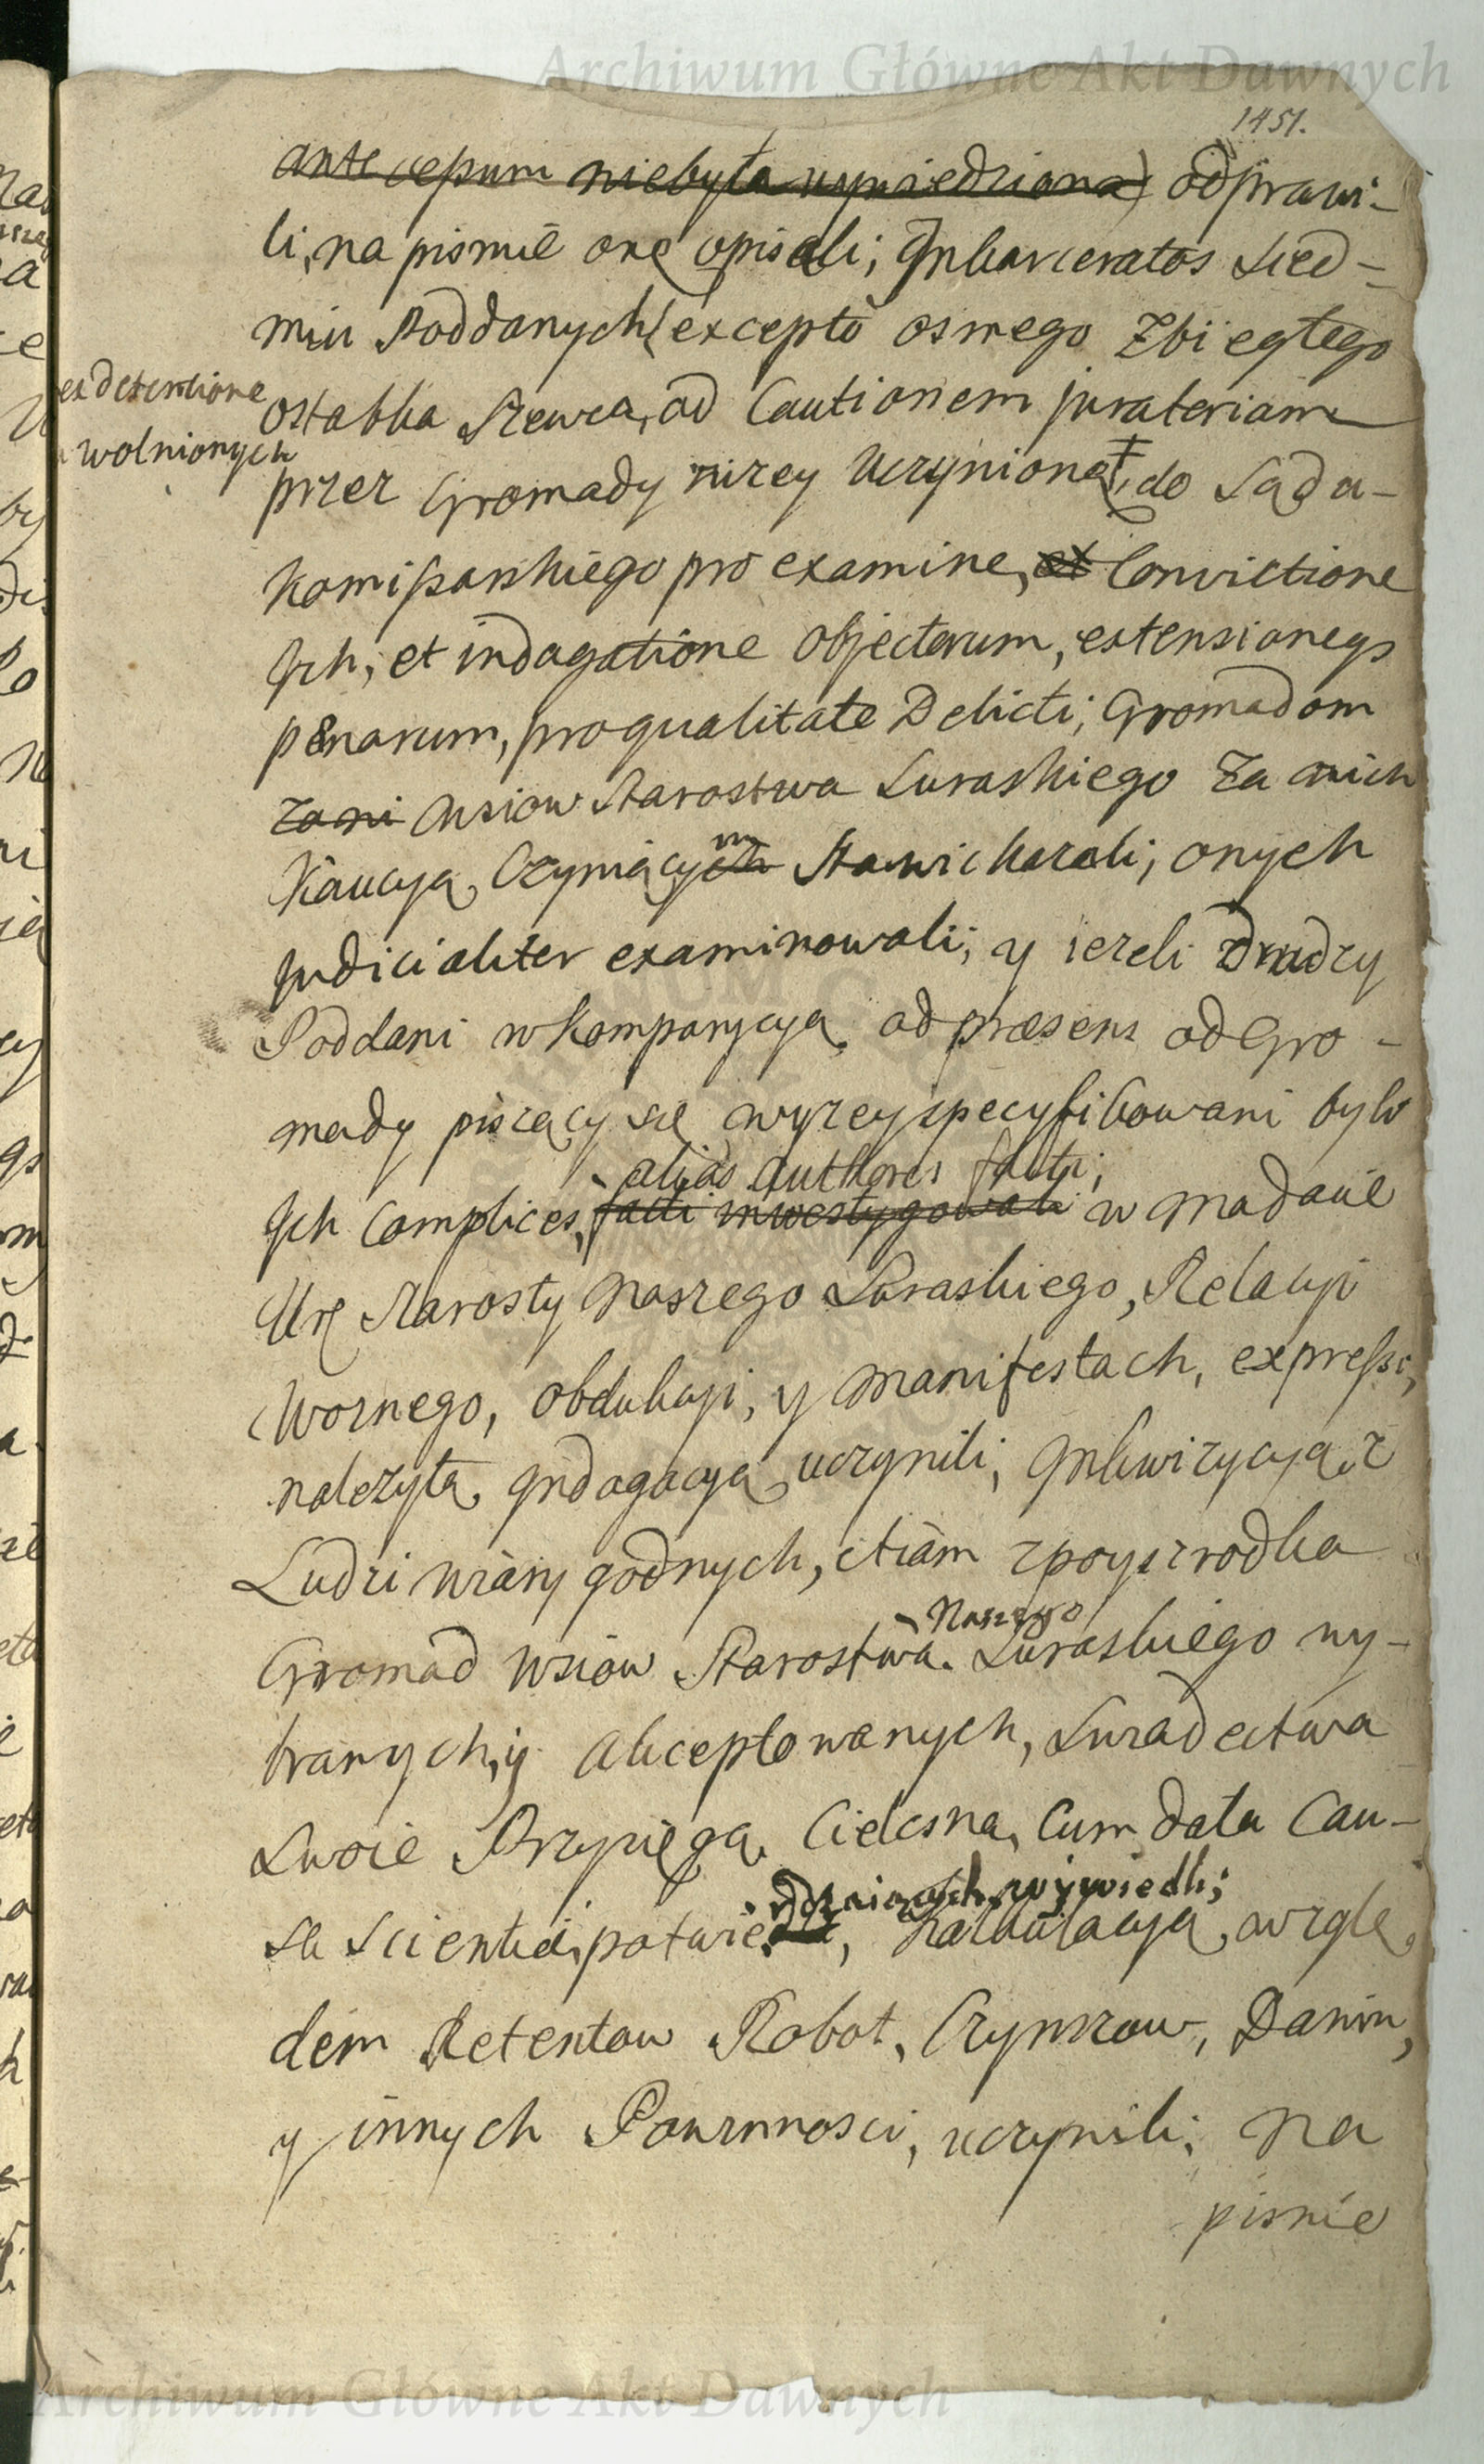 Archiwum Główne Akt Dawnych
1451.
ante cepum niebyła wywiedziona) odprawi-
li, na pismie onę opisali; Jnkarceratos Sied-
miu Poddanych (excepto osmego Zbiegłego
ex detentione
Ostabka Szewca, ad Cautionem juratoriam
wolnionych
przez Gromady nizey Uczynioną ‡, do Sądu-
komissarskiego pro examine, et Convictione
Jch, et indagatione objectorum, extensioneqs
penarum, pro qualitate Delicti; Gromadom
za ni Wsiow Starostwa Suraskiego za nich
Kaucyą Czyniących m Stawic kazali; onych
Judicialiter examinowali; y iezeli Drudzy
Poddani w komparycyą ad præsens od Gro-
mady piszący się wyzey specyfikowani byli
alias Authores facti;
Jch Complices, facti inwestygowali w Żądanie
Ur Starosty Naszego Suraskiego, Relacyi
Woznego, Obdukcyi, y Manifestach, expressi,
nalezytą Jndagacyą uczynili, Jnkwizycyą, z
Ludzi wiary godnych, etiam zpoyszrodka
Naszego
Gromad Wsiow Starostwa Suraskiego wy-
branych, y Akceptowanych, Swiadectwa
Swoie Przysięgą Cielesną, Cum data Cau-
wywiedli;
sa Scientiæ, potwie, kalkulacyą, wzglę
dem Retentow Robot, Czynszow, Danin,
y innych Powinnosci, uczynili; Na
pismie
Archiwum Główne Akt Dawnych